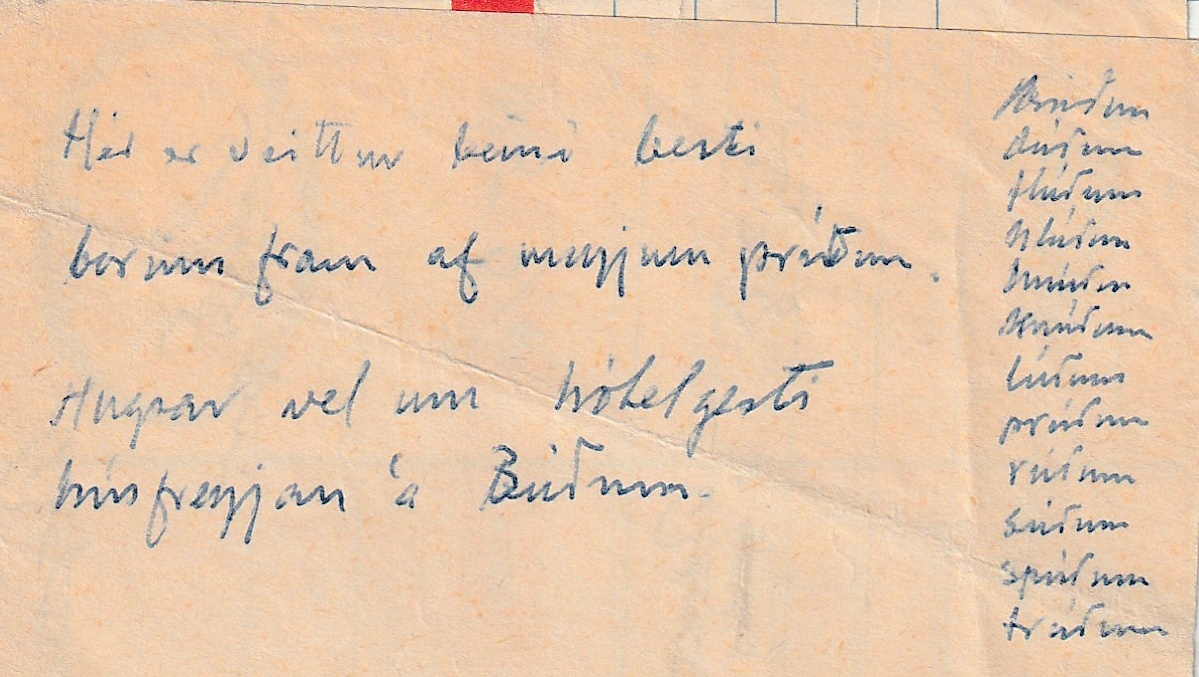 Hér er veittur beini besti
borinn fram af meyjum prúðum.
Hugsar vel um hótelgesti
húsfreyjan á Búðum.
Búðum
dúðum
flúðum
hlúðum
hnúðum
knúðum
lúðum
prúðum
rúðum
súðum
spúðum
trúðum